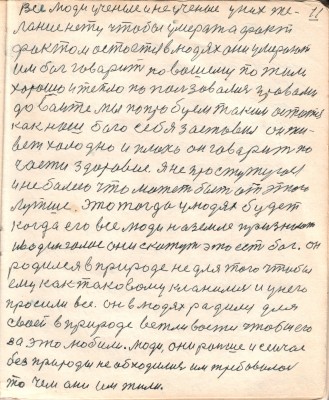 11
Все люди ученые и не ученые у них же-
лание нету чтобы умерать а факт
фактом остоет в людях они умерают
им бог говарит по вашему пожыли
хорошо и тепло попользовалис
давайте мы попробуем таким остатся
как наш бог себя заставил он жи-
вет холодно и плохо он говарит по
части здоровие я не простужуюсь
и не балею что может быт от этого
лутше. Это тогда у людях будет
когда его все люди на земле признают
и в один голос они скажут это ест бог. он
родился в природе не для того чтобы
ему как таковому кланялис и у него
просили все. он в людях радилис для
своей в природе вежливости чтобы его
за это любили. люди, они ранше и сейчас
без природы не обходилис им требовалос
то чем они им жыли.